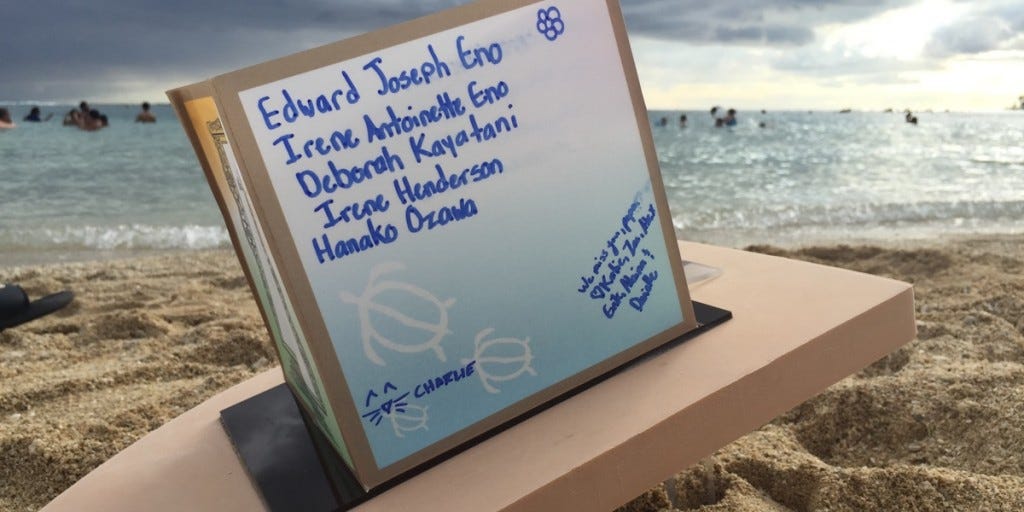 Edward Joseph Eno
Irene Antoinette Eno
Deborah Kayatani
Irene Henderson
Hanako Ozawa
We miss you,
Katie,
CHARLIE